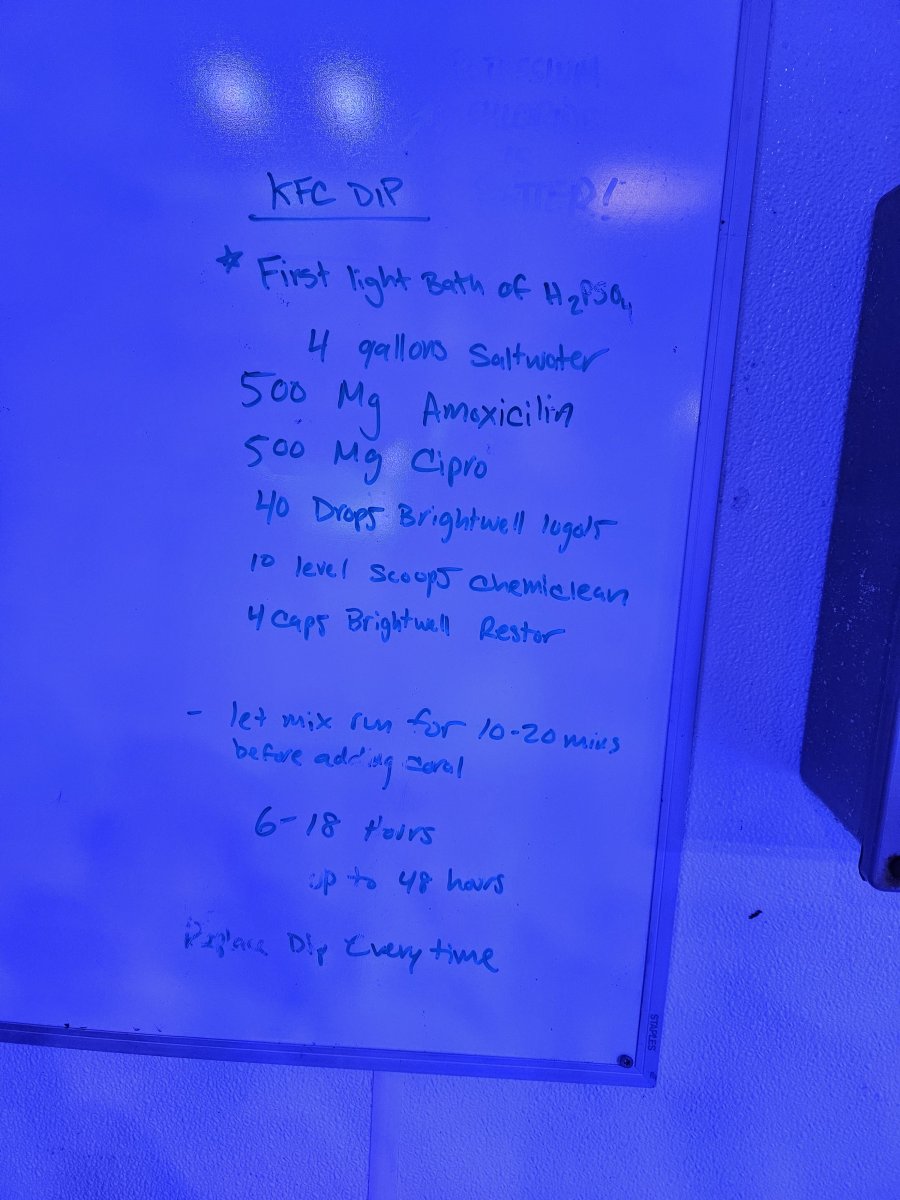 KFC DIP
* First light Bath of H2PSO4
4 gallons Saltwater
500 Mg Amoxicilin
500 Mg Cipro
40 Drops Brightwell lugols
10 level scoops chemiclean
4 caps Brightwell Restor
- let mix run for 10-20 mins
before adding coral
6-18 Hours
up to 48 hours
Replace Dip Every time
STAPLES